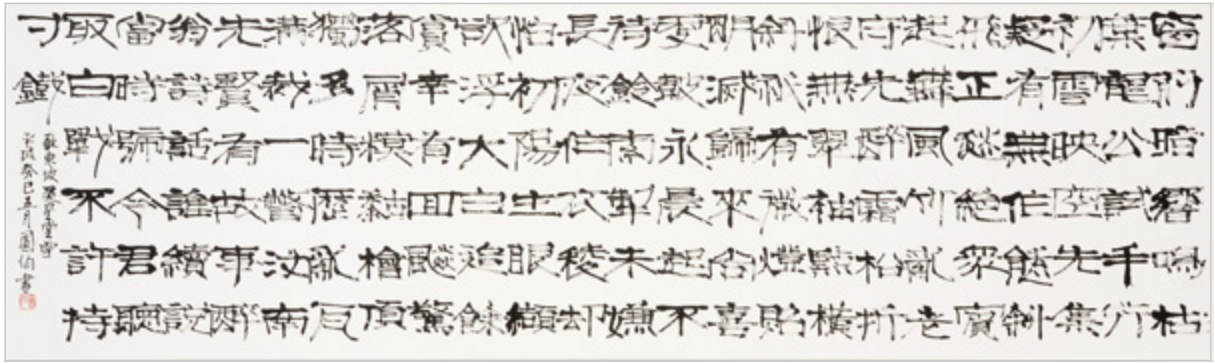 窗前暗響鳴枯
葉龍公試手行
初雪映空先集
疑有無作態斜
飛正愁絕眾賓
起舞風竹亂老
守先醉霜松折
恨無翠袖點橫
斜袛有微燈照
明滅歸來尚喜
更鼓永晨起不
待鈴索掣未嫌
長夜作衣稜却
怕初陽生眼纈
欲浮大白追餘
賞幸有回飆驚
落屑模糊檜頂
獨多時歷亂瓦
溝裁一瞥汝南
先賢有故事醉
翁詩話誰續說
當時號令君聽
取白戰不許持
寸鐵
蘇東坡聚星堂雪
癸巳五月園伯書